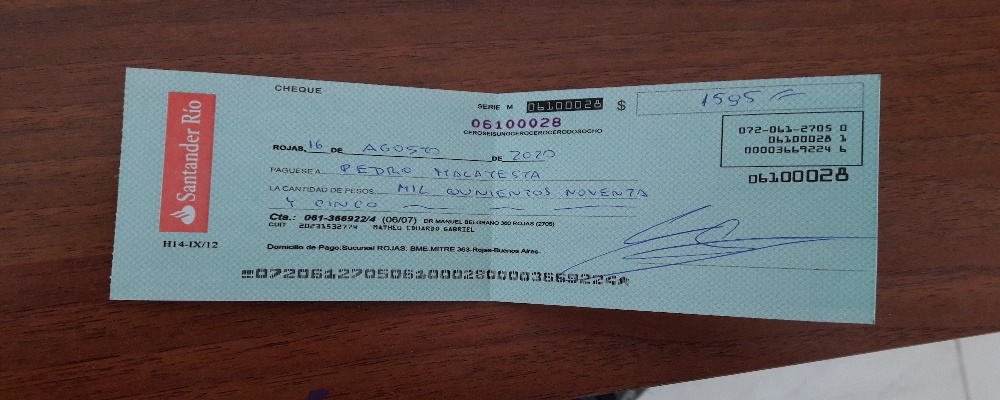 CHEQUE
Santander Río
H14-IX/12
SERIE M 06100028 $ 1595
06100028
CEROSEISUNOCEROCEROCERODOSOCHO
072-061-2705 0
06100028 1
00003669224 6
06100028
ROJAS, 16 DE AGOSTO DE 2020
PAGUESE A PEDRO MALATESTA
LA CANTIDAD DE PESOS MIL QUINIENTOS NOVENTA
Y CINCO
Cta.: 061-366922/4 (06/07) DR MANUEL BELGRANO 360 ROJAS (2705)
CUIT 20231532774 MATHEU EDUARDO GABRIEL
Domicilio de Pago:Sucursal ROJAS: BME.MITRE 363-Rojas-Buenos Aires.
072061270506100028000036692246